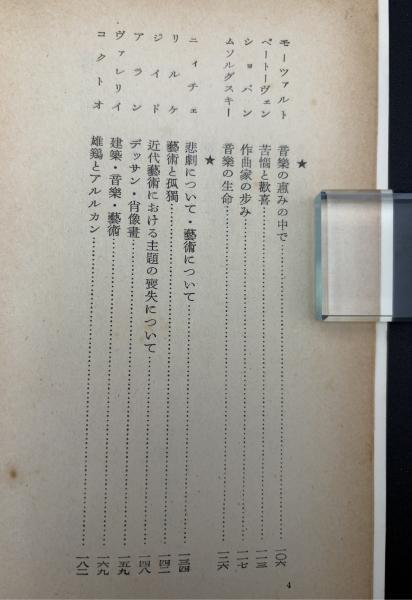 ★
モーツァルト 音樂の惠みの中で……一〇六
ベートーヴェン 苦惱と歡喜……一一三
ショパン 作曲家の歩み……一一七
ムソルグスキー 音樂の生命……一二六
★
ニイチェ 悲劇について・藝術について……一三四
リルケ 藝術と孤獨……一四二
ジイド 近代藝術における主題の喪失について……一四八
アラン デッサン・肖像畫……一五九
ヴァレリイ 建築・音樂・藝術……一六九
コクトオ 雄鶏とアルルカン……一八二
4